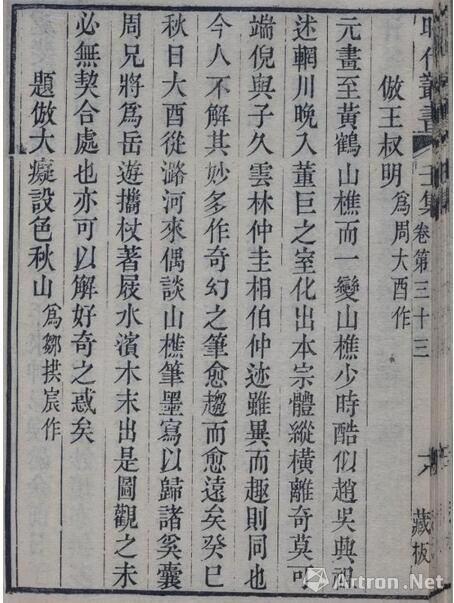 代叢書 集 卷第三十三 藏板
倣王叔明 爲周大酉作
元畫至黃鶴山樵而一變山樵少時酷似趙吳興祖
述輞川晚入董巨之室化出本宗體縱橫離奇莫可
端倪與子久雲林仲圭相伯仲迹雖異而趣則同也
今人不解其妙多作奇幻之筆愈趨而愈遠矣癸巳
秋日大酉從潞河來偶談山樵筆墨寫以歸諸奚囊
周兄將爲岳遊擕杖著屐水濱木末出是圖觀之未
必無契合處也亦可以解好奇之惑矣
題倣大癡設色秋山 爲鄒拱宸作
Artron.Net